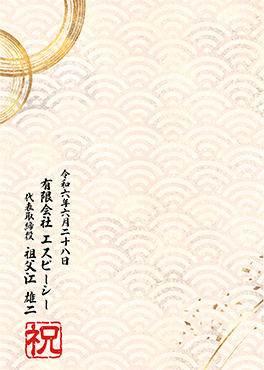 令和六年六月二十八日
有限会社 エスピーシー
代表取締役 祖父江 雄二
祝